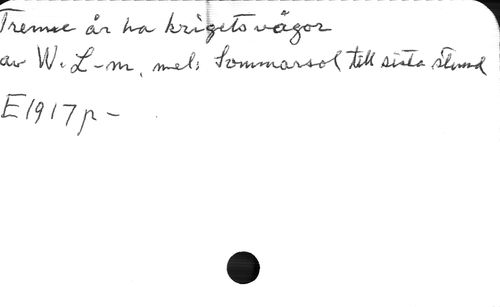 Trenne år ha krigets vågor
av W. L-m. mel: Sommarsol till sista stund
E 1917 p -